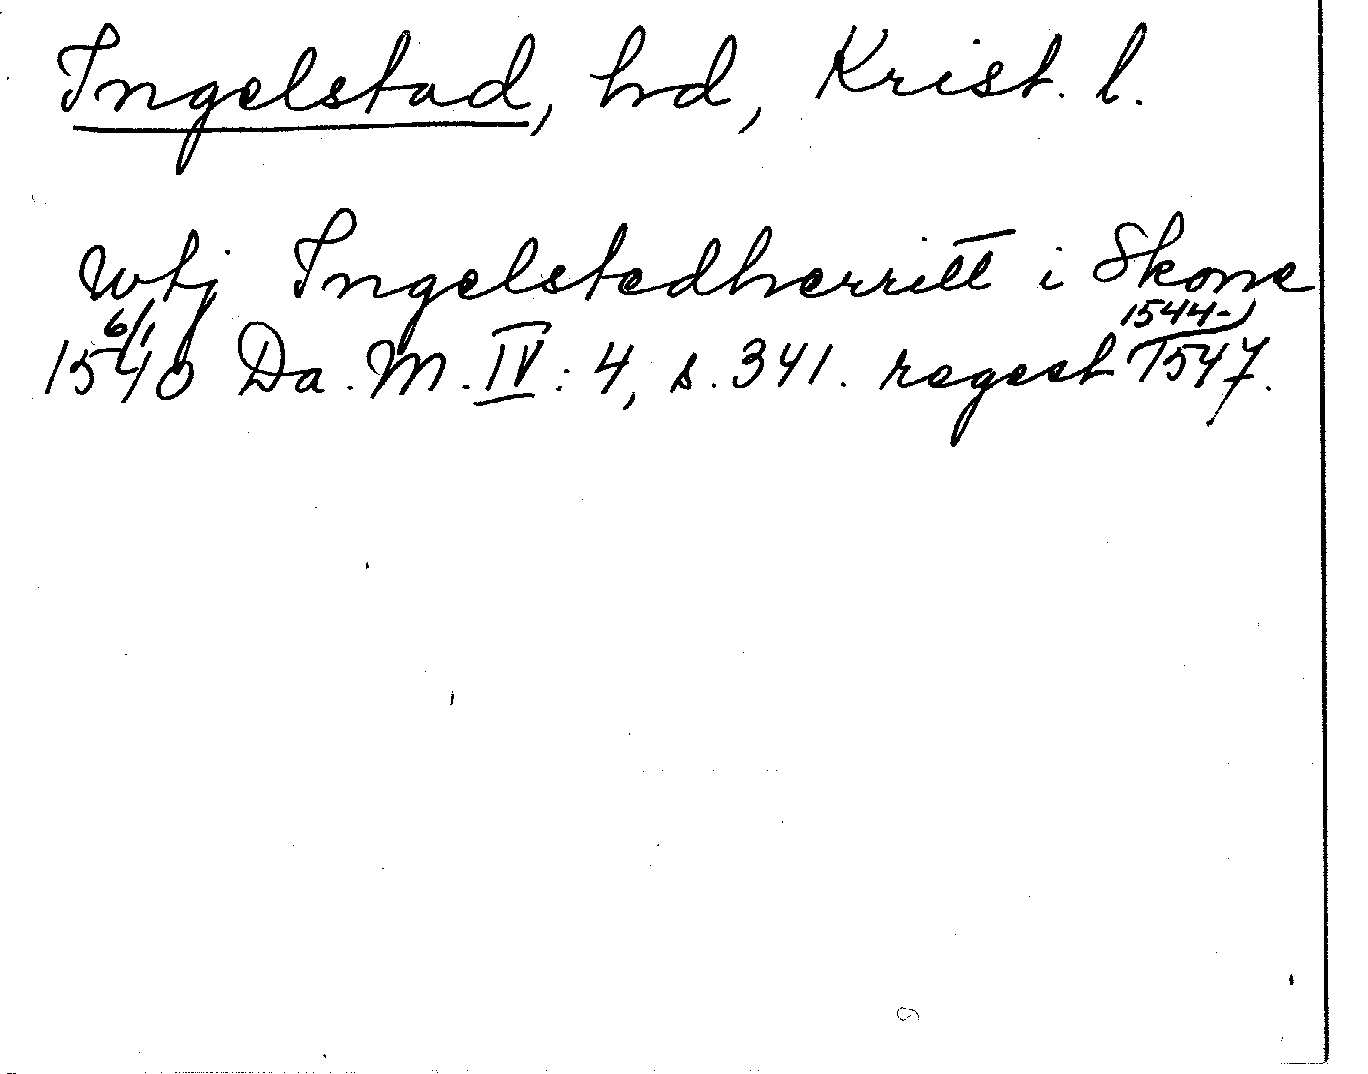 Ingelstad, hd, Krist. l.
wtj Ingelstedherritt i Skone
6/1 1544-)
1540 Da. M. IV: 4, s. 341. regest 1547.